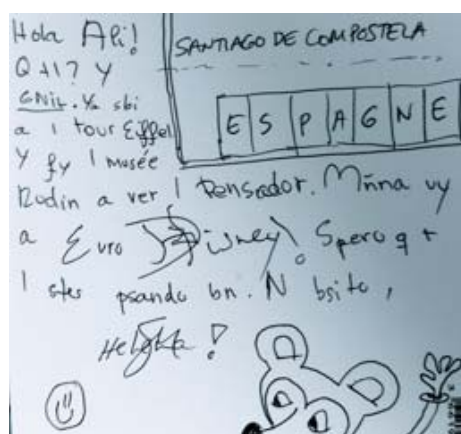 Hola Api!
Q tl? Y
GNiL. Ya sbi
a l tour Eiffel
Y fy l musée
Rodin a ver l Pensador. Mñna vy
a Euro Disney! Spero q t
l stes psando bn. N bsito,
SANTIAGO DE COMPOSTELA
ESPAGNE